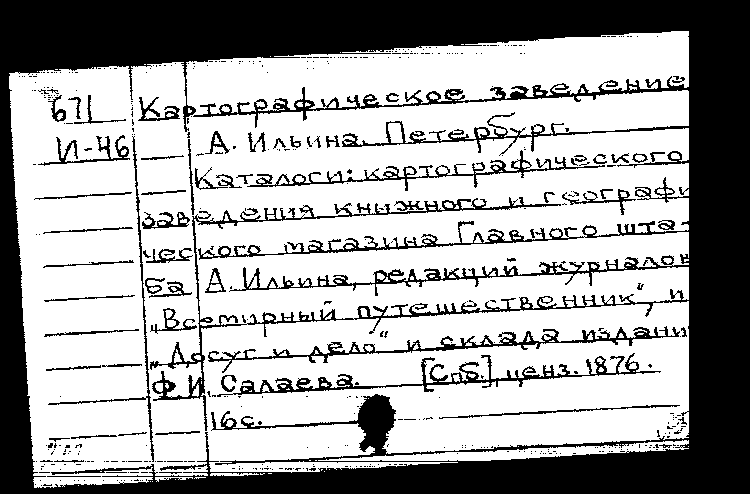 671 Картографическое заведение
И-46 А. Ильина. Петербург.
Каталоги: картографического
заведения книжного и географи
ческого магазина Главного шта
ба А. Ильина, редакций журналов
„Всемирный путешественник“, и
„Досуг и дело“ и склада издани
Ф.И. Салаева. [СпБ.], ценз. 1876.
16с.